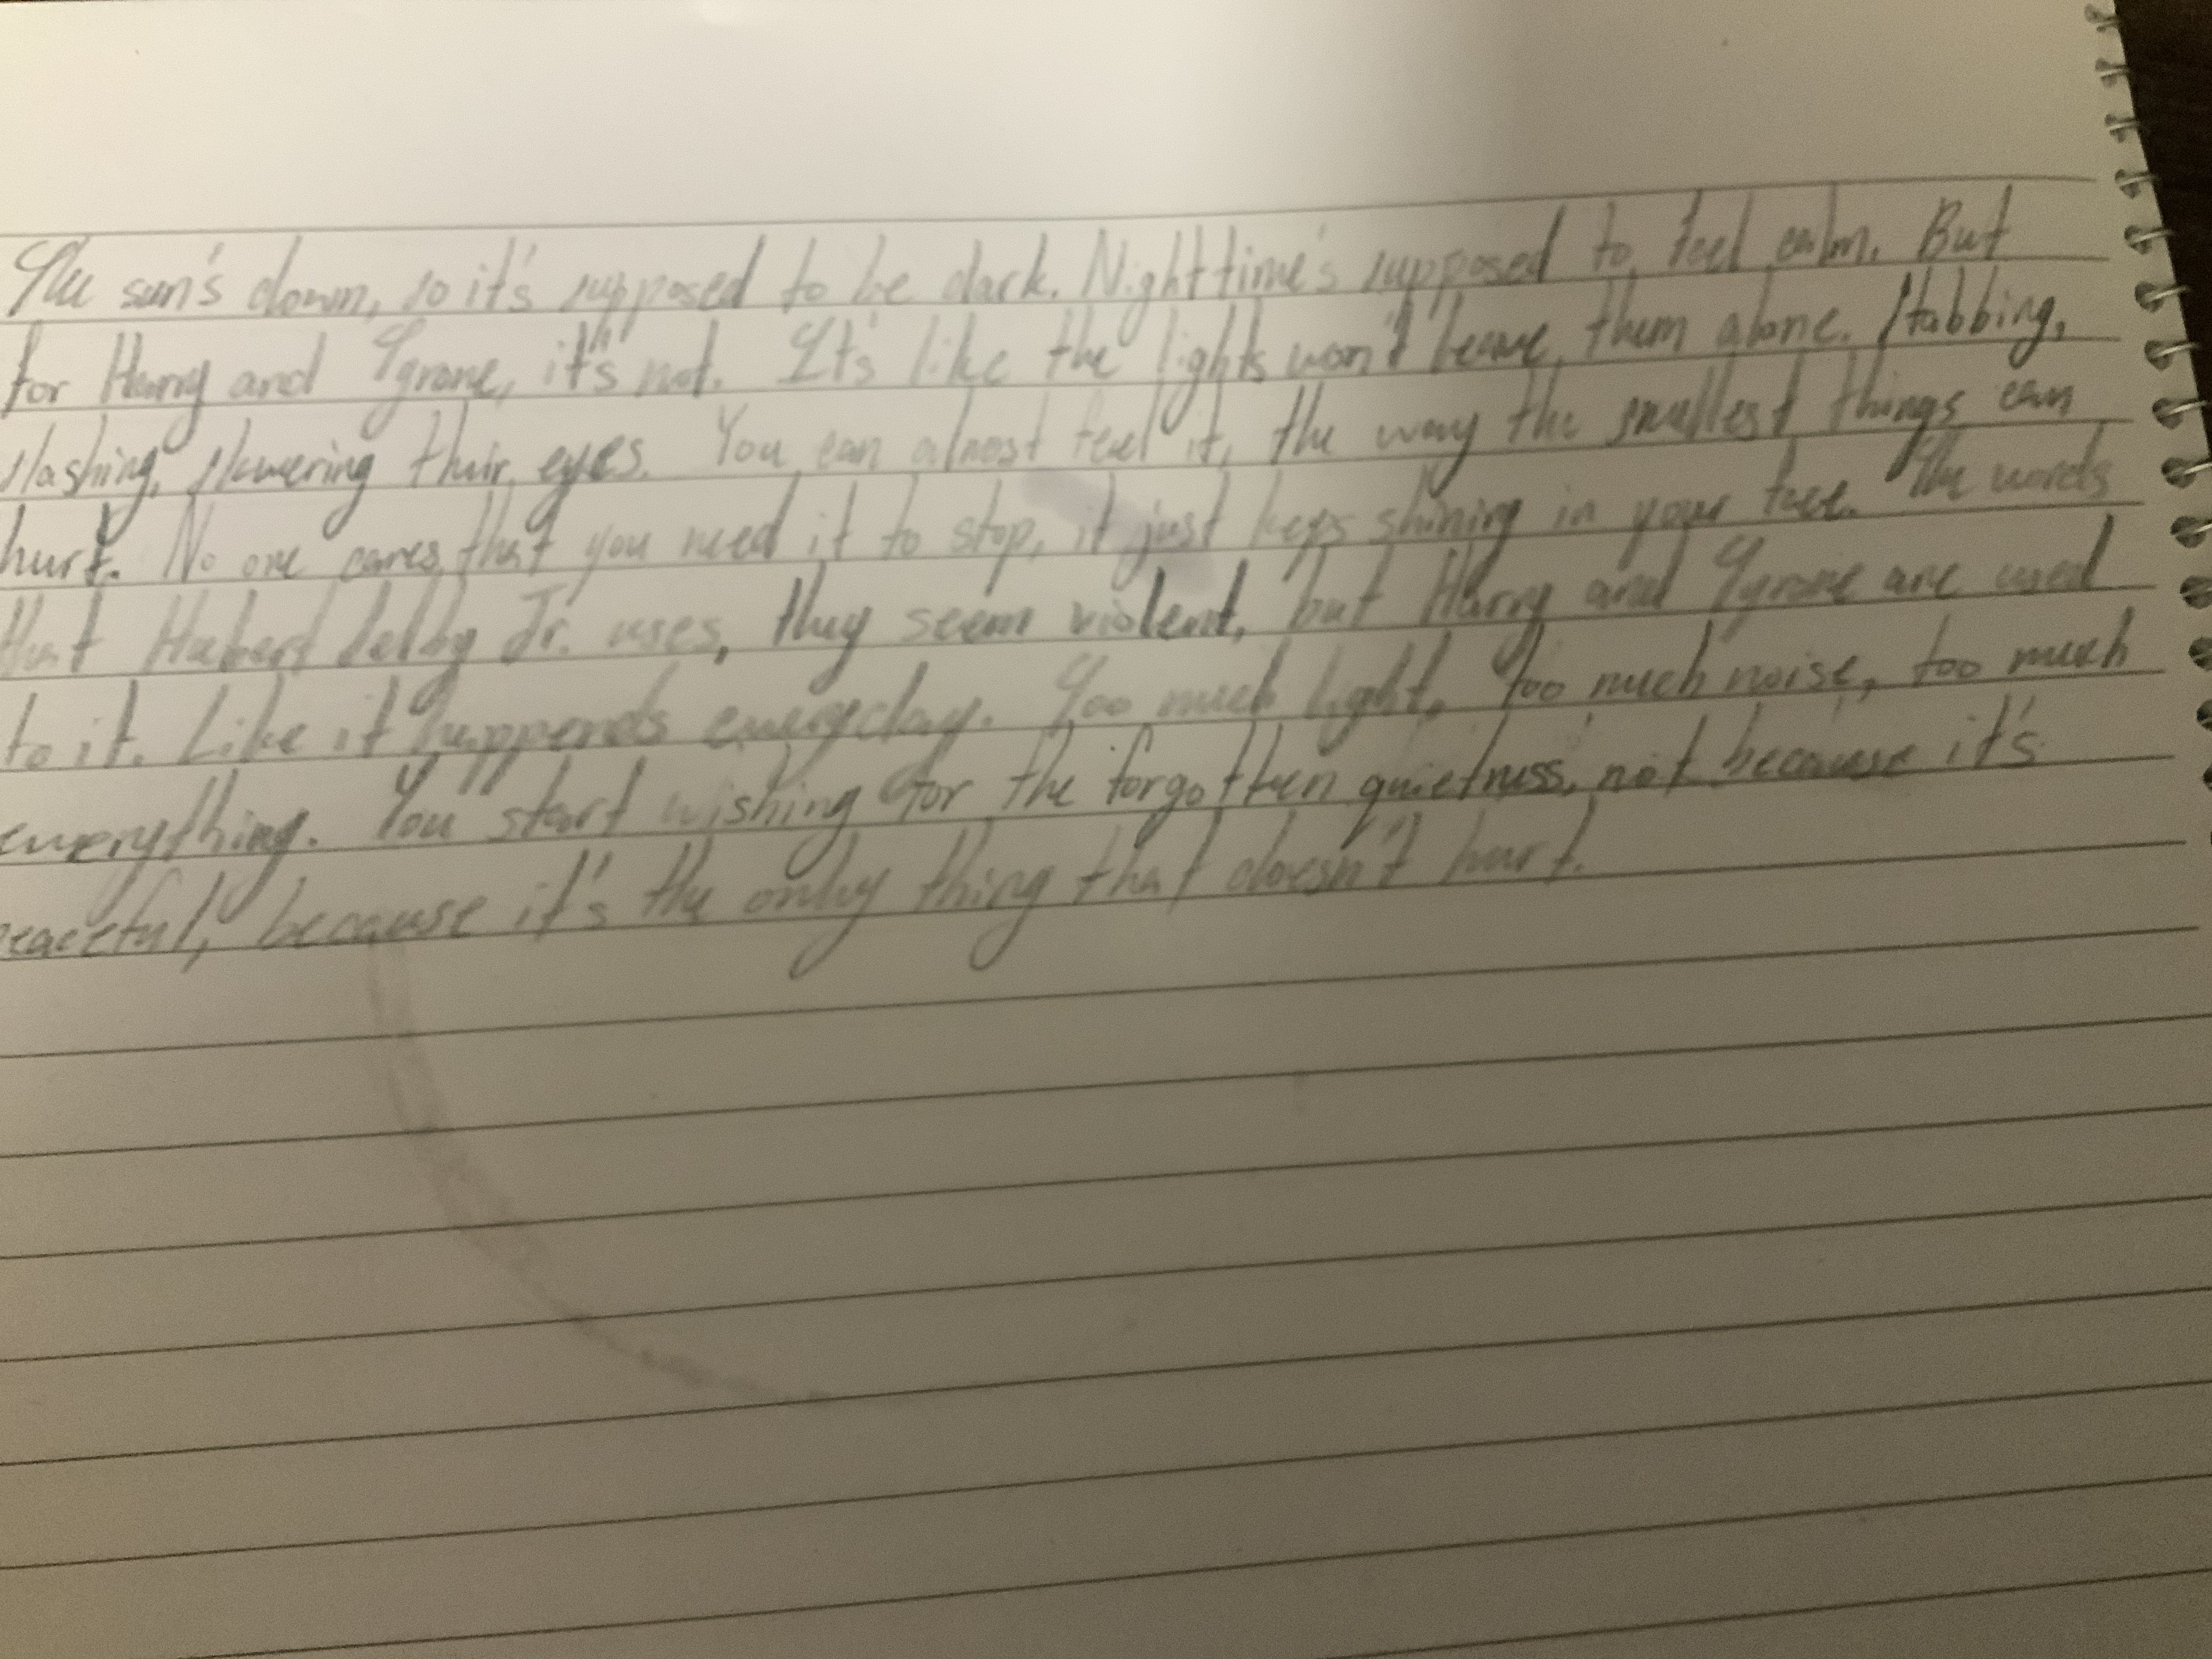 The sun's down, so it's supposed to be dark. Nighttime's supposed to feel calm. But
for Harry and Tyrone, it's not. It's like the lights won't leave them alone. Stabbing,
slashing, skewering their eyes. You can almost feel it, the way the smallest things can
hurt. No one cares that you need it to stop, it just keeps shining in your face. The words
that Hubert Selby Jr. uses, they seem violent, but Harry and Tyrone are used
to it. Like it happends everyday. Too much light, too much noise, too much
everything. You start wishing for the forgotten quietness, not because it's
peaceful, because it's the only thing that doesn't hurt.